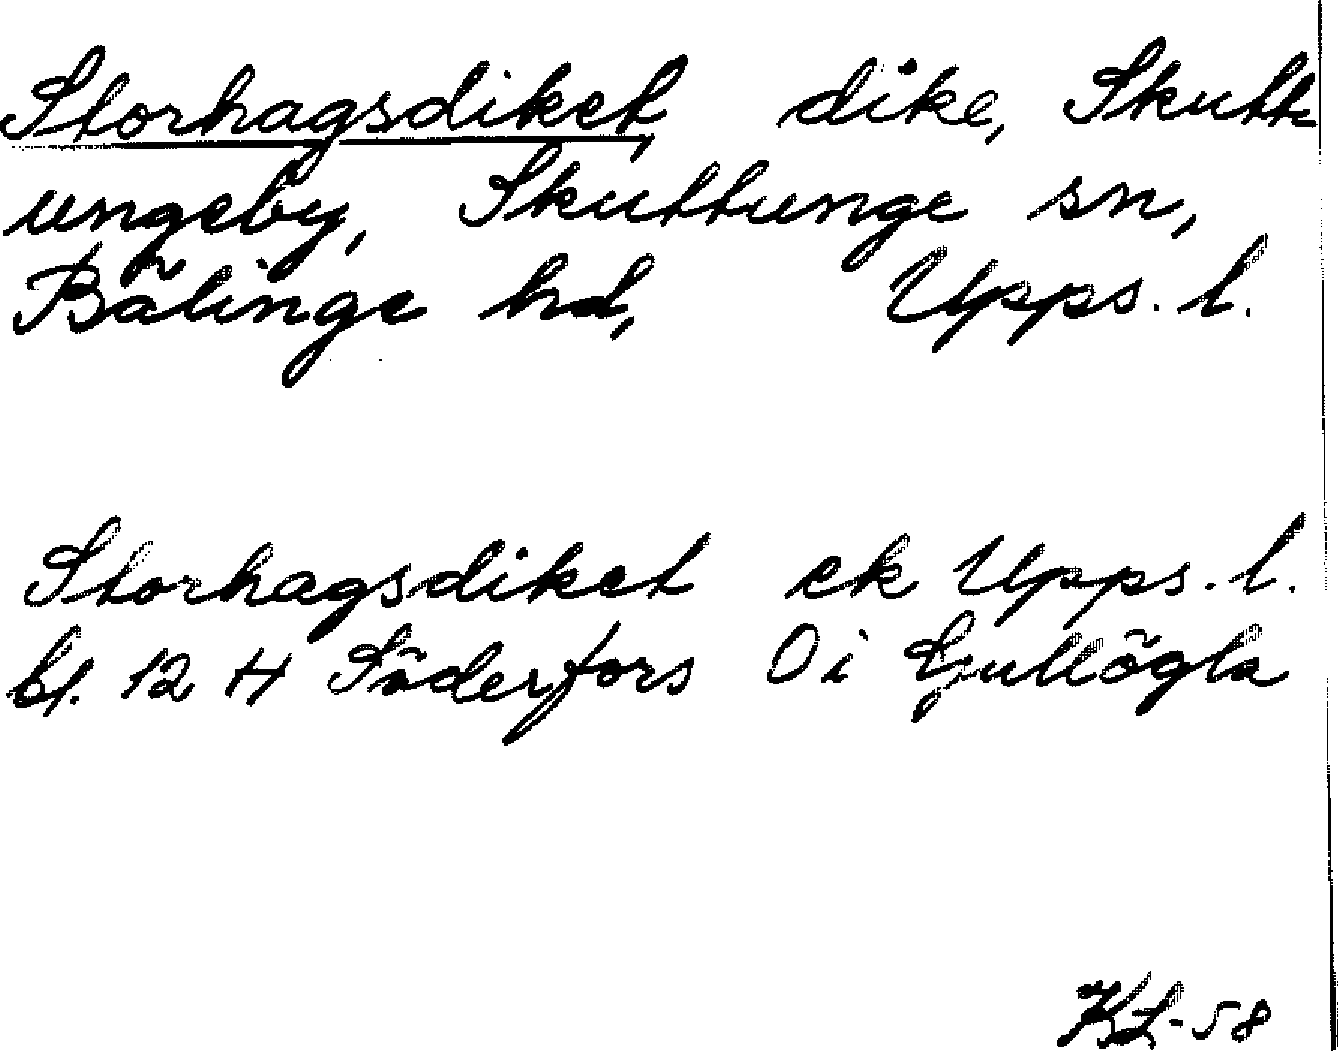 Storhagsdiket, dike, Skutt-
ungeby, Skuttunge sn,
Bälinge hd, Upps. l.
Storhagsdiket ek Upps. l.
bl. 12 H Söderfors O i Gullögla
KL-58